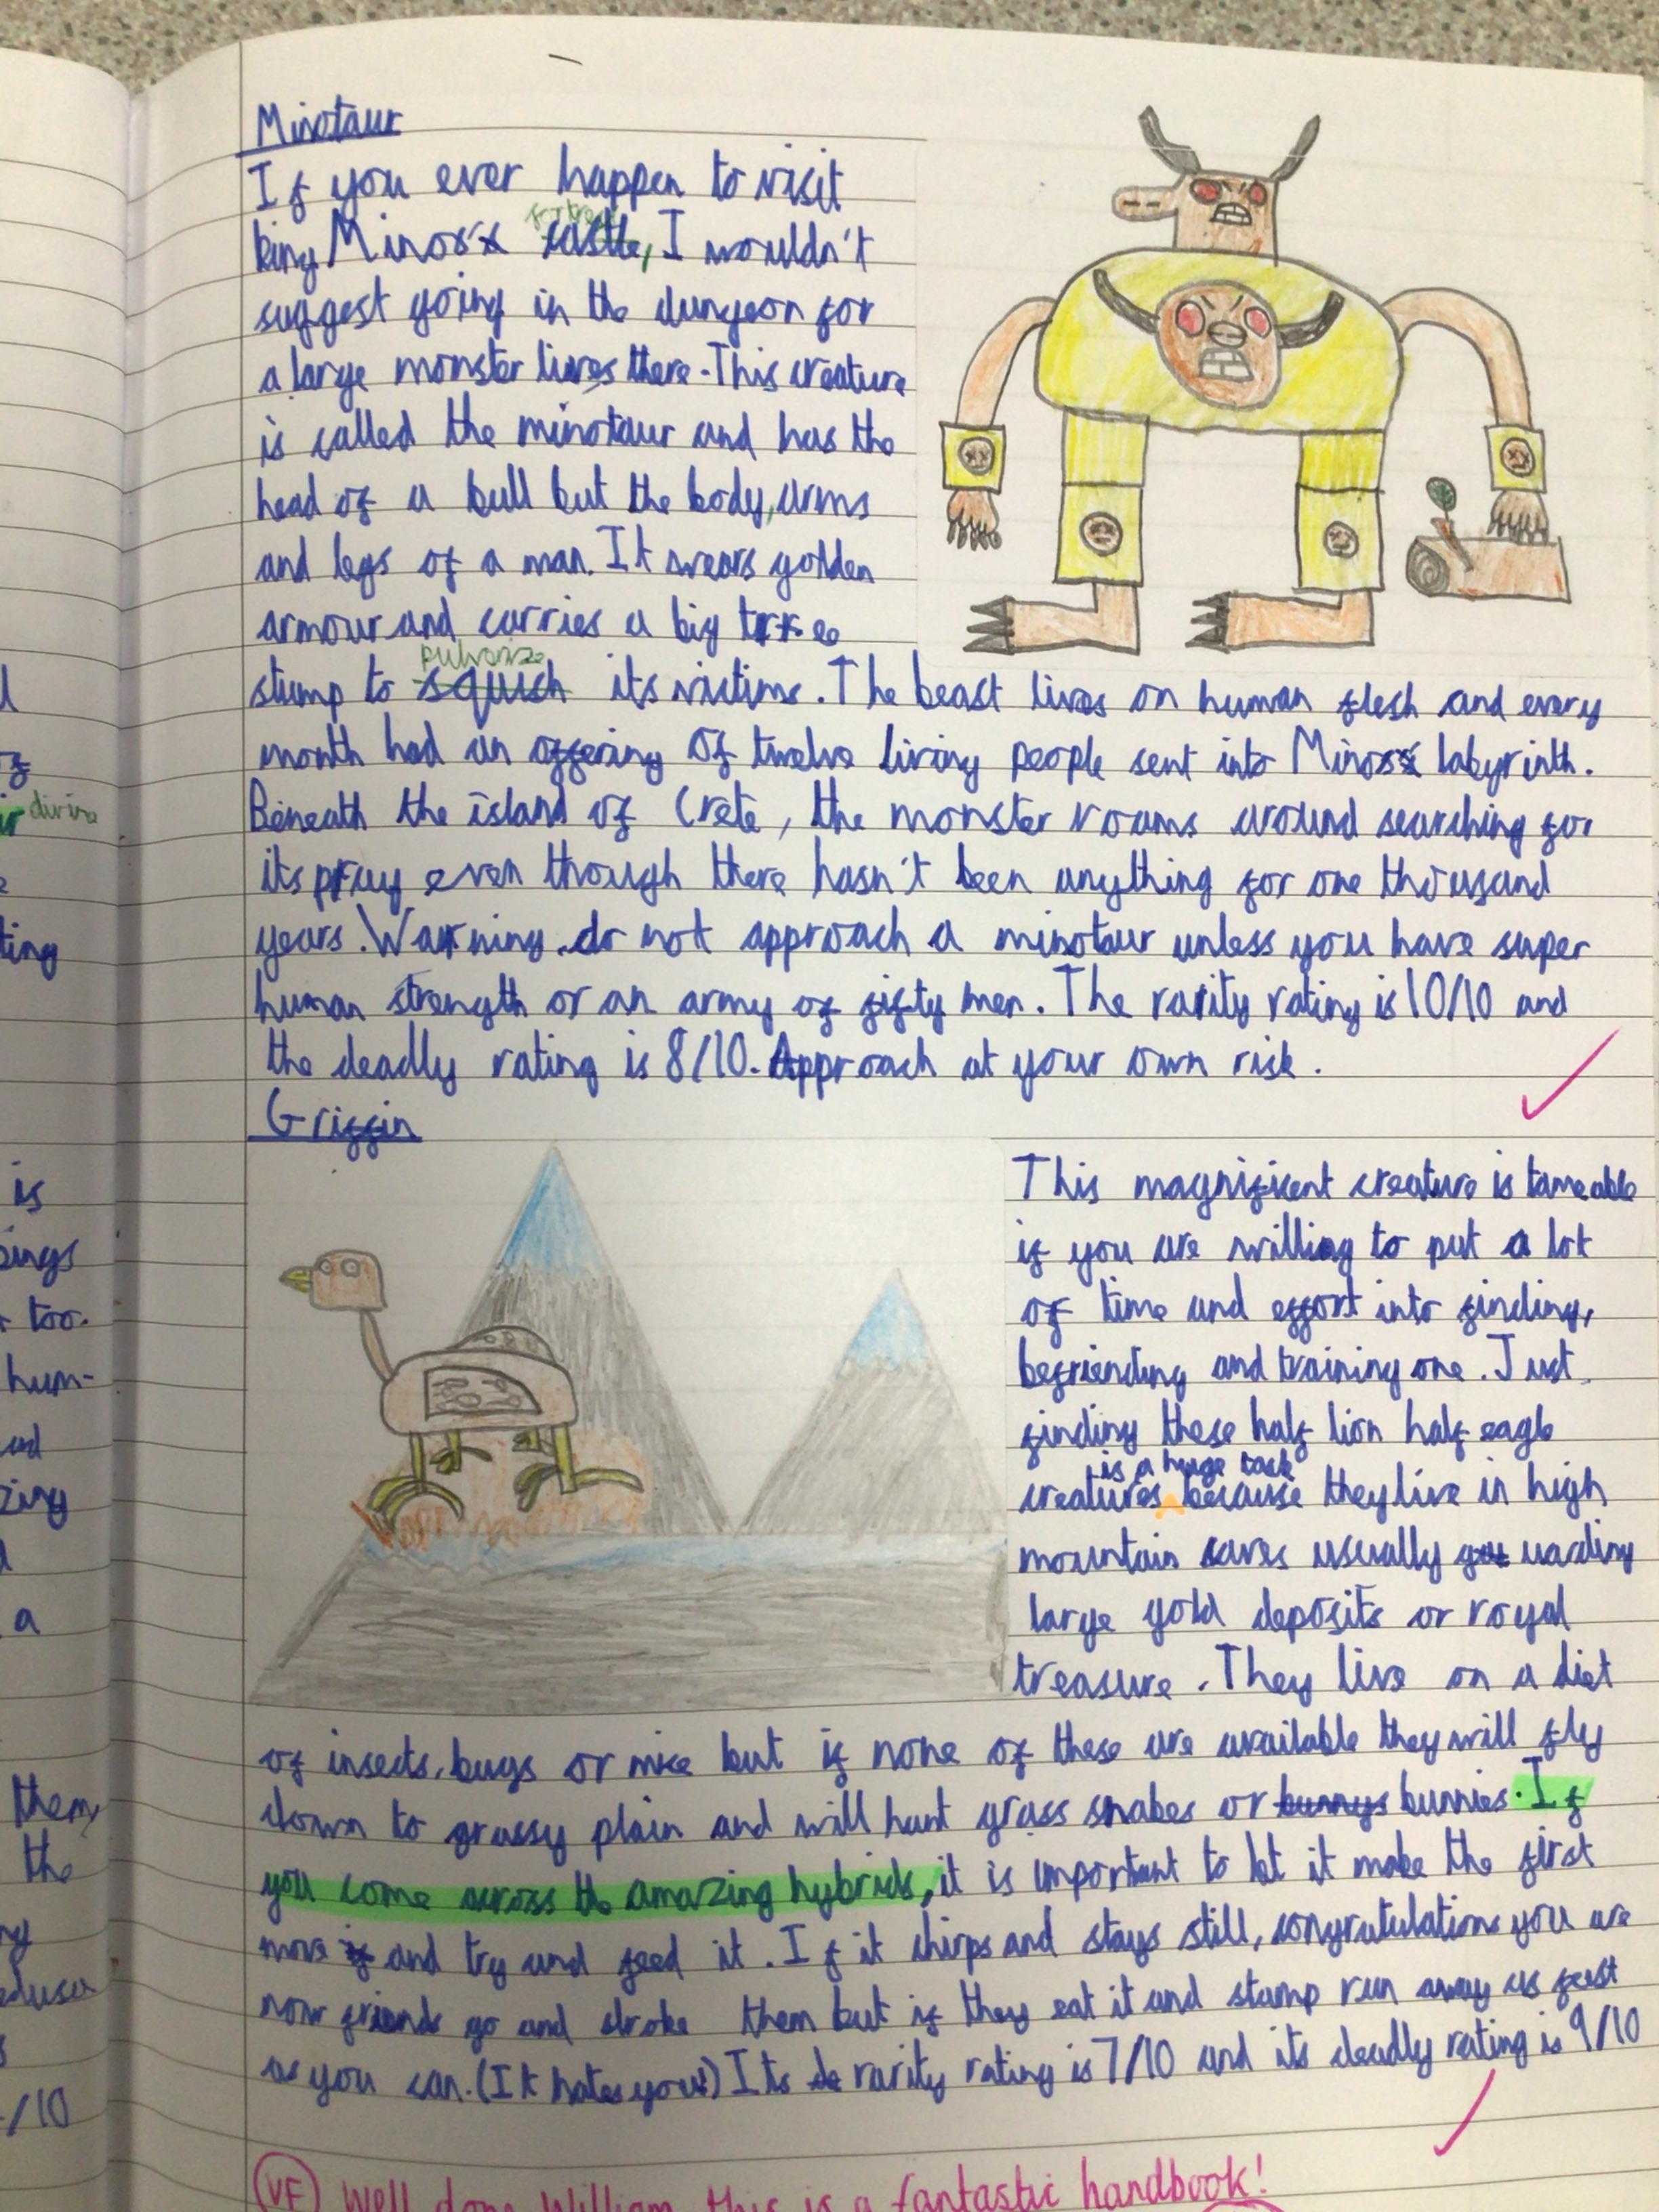 Minotaur
If you ever happen to visit
king Minos's fortress castle, I wouldn't
suggest going in the dungeon for
a large monster lives there. This creature
is called the minotaur and has the
head of a bull but the body, arms
and legs of a man. It wears golden
armour and carries a big tree
pulvorize
stump to squish its victims. The beast lives on human flesh and every
month had an offering of twelve living people sent into Minos's labyrinth.
Beneath the island of Crete, the monster roams around searching for
its pray even though there hasn't been anything for one thousand
years. Warning do not approach a minotaur unless you have super
human strength or an army of fifty men. The rarity rating is 10/10 and
the deadly rating is 8/10. Approach at your own risk.
Griffin
This magnificent creature is tameable
if you are willing to put a lot
of time and effort into finding,
befriending and training one. Just
finding these half lion half eagle
is a huge task
creatures because they live in high
mountain caves usually guarding
large gold deposits or royal
treasure. They live on a diet
of insects, bugs or mice but if none of these are available they will fly
down to grassy plain and will hunt grass snakes or bunnys bunnies. If
you come across the amazing hybrids, it is important to let it make the first
move if and try and feed it. If it chirps and stays still, congratulations you are
now friends go and stroke them but if they eat it and stamp run away as fast
as you can. (It hates you!) Its de rarity rating is 7/10 and its deadly rating is 9/10
VF Well done William, this is a fantastic handbook!
of
divine
ting
is
too.
hum-
a
them,
the
/10